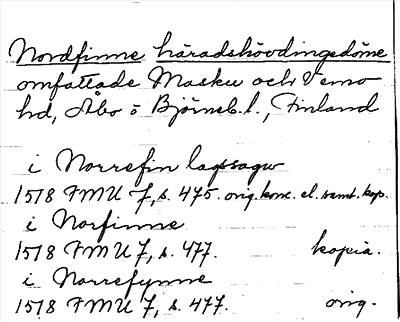 Nordfinne häradshövdingedöme
omfattade Masku och Vemo
hd, Åbo o Björneb. l., Finland
i Norrefin lagsagw
1518 FMU 7, s. 475. orig. konc. el. samt. kop.
i Norfinne
1518 FMU 7, s. 477. kopia.
i Norrefynne
1518 FMU 7, s. 477. orig.